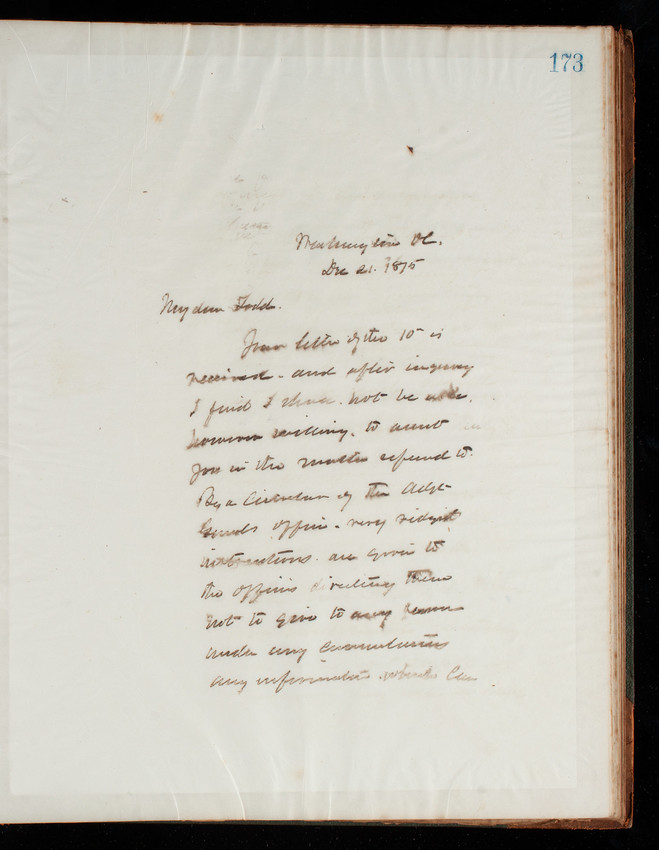 173
Washington DC.
Dec 21. 1875
My dear Todd.
Your letter of the 10" is
received - and after inquiry
I find I shall not be able,
however willing, to assist
you in the matter referred to.
By a Circular of the Adjt
Genls office - very rigid
instructions are given to
the officers directing them
not to give to any person
under any circumstances
any information which can